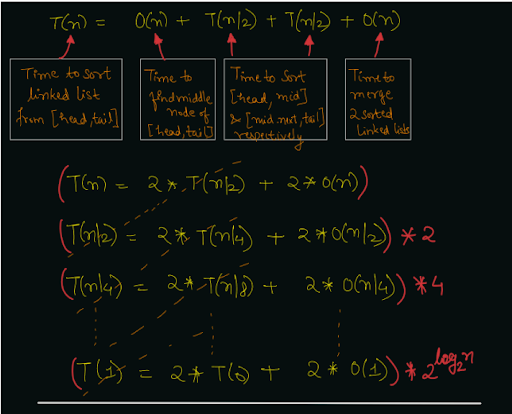 T(n) = O(n) + T(n/2) + T(n/2) + O(n)
Time to sort
linked list
from [head,tail]
Time to
find middle
node of
[head,tail]
Time to sort
[head, mid]
& [mid.next, tail]
respectively
Time to
merge
2 sorted
linked lists
(T(n) = 2* T(n/2) + 2*O(n))
(T(n/2) = 2* T(n/4) + 2*O(n/2)) *2
(T(n/4) = 2* T(n/8) + 2* O(n/4)) *4
(T(1) = 2* T(0) + 2* O(1)) * 2^log₂n